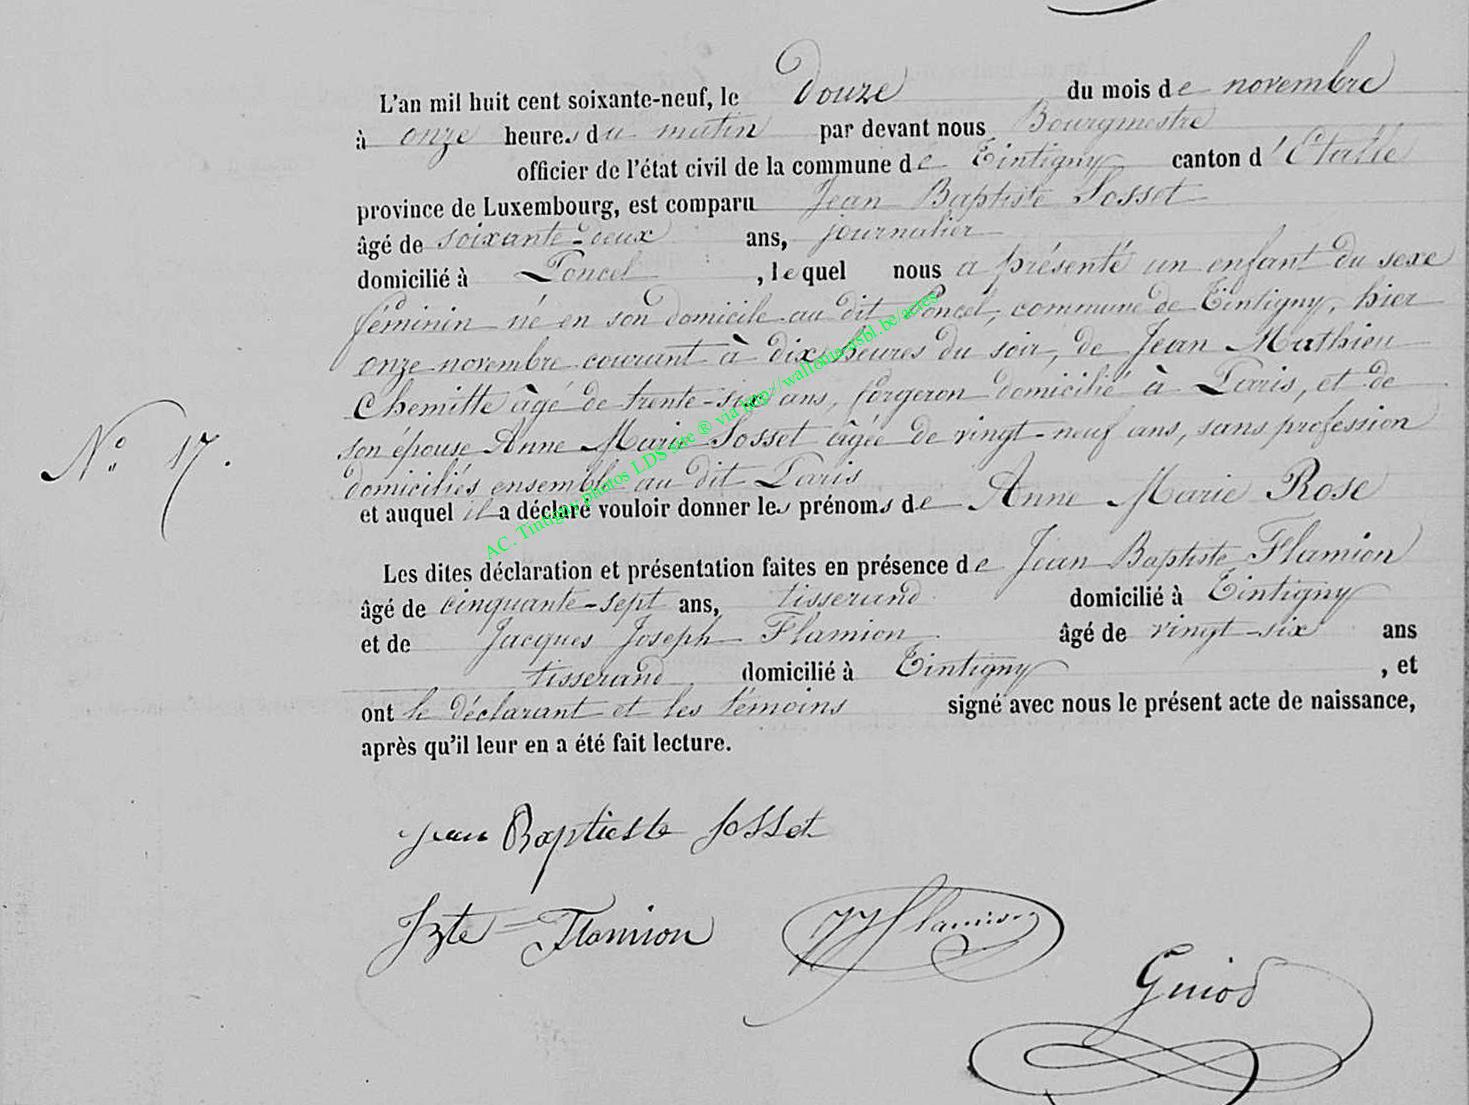 L'an mil huit cent soixante-neuf, le Douze du mois de novembre
à onze heures du matin par devant nous Bourgmestre
officier de l'état civil de la commune de Tintigny canton d'Etalle
province de Luxembourg, est comparu Jean Baptiste Sosset
âgé de soixante-deux ans, journalier
domicilié à Poncel, lequel nous a présenté un enfant du sexe
féminin né en son domicile au dit Poncel, commune de Tintigny, hier
onze novembre courant à dix heures du soir, de Jean Mathieu
Chemitte âgé de trente-six ans, forgeron domicilié à Paris, et de
son épouse Anne Marie Sosset âgée de vingt-neuf ans, sans profession
N° 17.
domiciliés ensemble au dit Paris
et auquel il a déclaré vouloir donner les prénoms de Anne Marie Rose
Les dites déclaration et présentation faites en présence de Jean Baptiste Flamion
âgé de cinquante-sept ans, tisserand domicilié à Tintigny
et de Jacques Joseph Flamion âgé de vingt-six ans
tisserand domicilié à Tintigny, et
ont le déclarant et les témoins signé avec nous le présent acte de naissance,
après qu'il leur en a été fait lecture.
Jean Baptieste Sosset
Jbte Flamion JJ Flamion
Guiod
AC. Tintigny photos LDS Site ® via http://wallonia-asbl.be/actes